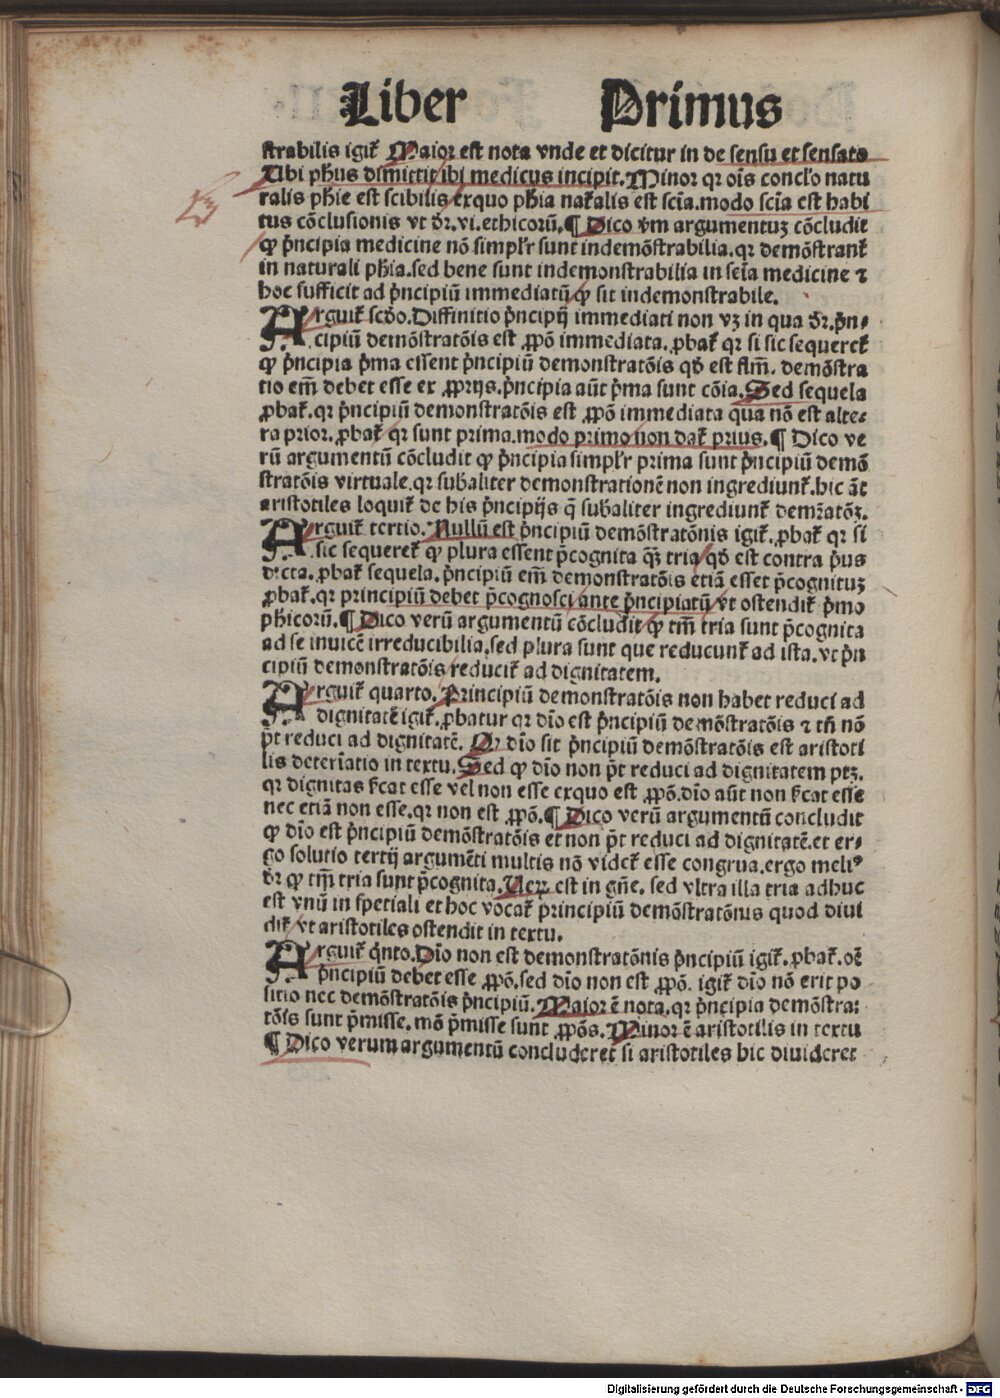 Liber Primus
strabilis igit̃ Maior est nota vnde et dicitur in de sensu et sensato
Ubi ph̃us dimittit ibi medicus incipit. Minor qꝛ oĩs conclõ natu
ralis ph̃ie est scibilis exquo ph̃ia nat̃alis est scĩa. modo scĩa est habi
tus cõclusionis vt dr̃. vi. ethicorũ. ¶ Dico vm̃ argumentuʒ cõcludit
ꝙ p̃ncipia medicine nõ simplr̃ sunt indemõstrabilia. qꝛ demõstrant̃
in naturali ph̃ia. sed bene sunt indemonstrabilia in scĩa medicine ⁊
hoc sufficit ad p̃ncipiũ immediatũ ꝙ sit indemonstrabile.
Arguit̃ scd̃o. Diffinitio p̃ncipij immediati non vʒ in qua dr̃. p̃n⸗
cipiũ demõstratõis est ꝓpõ immediata. ꝓbat̃ qꝛ si sic sequeret̃
ꝙ p̃ncipia p̃ma essent p̃ncipiũ demonstratõis qd̃ est flm̃. demõstra
tio em̃ debet esse ex ꝓprijs. p̃ncipia aũt p̃ma sunt cõia. Sed sequela
ꝓbat̃. qꝛ p̃ncipiũ demonstratõis est ꝓpõ immediata qua nõ est alte⸗
ra prior. ꝓbat̃ qꝛ sunt prima. modo primo non dat̃ prius. ¶ Dico ve
rũ argumentũ cõcludit ꝙ p̃ncipia simplr̃ prima sunt p̃ncipiũ demõ
stratõis virtuale. qꝛ sub̃aliter demonstrationẽ non ingrediunt̃. hic ãt
aristotiles loquit̃ de his p̃ncipijs q̃ sub̃aliter ingrediunt̃ demr̃atõʒ.
Arguit̃ tertio. Nullũ est p̃ncipiũ demõstratõnis igit̃. ꝓbat̃ qꝛ si
sic sequeret̃ ꝙ plura essent p̃cognita q̃ʒ tria qd̃ est contra p̃us
dicta. ꝓbat̃ sequela. p̃ncipiũ em̃ demonstratõis etiã esset p̃cognituʒ
ꝓbat̃. qꝛ principiũ debet p̃cognosci ante p̃ncipiatũ vt ostendit̃ p̃mo
ph̃icorũ. ¶ Dico verũ argumentũ cõcludit ꝙ tm̃ tria sunt p̃cognita
ad se inuicẽ irreducibilia. sed plura sunt que reducunt̃ ad ista. vt p̃n
cipiũ demonstratõis reducit̃ ad dignitatem.
Arguit̃ quarto. Principiũ demonstratõis non habet reduci ad
dignitatẽ igit̃. ꝓbatur qꝛ dĩo est p̃ncipiũ demõstratõis ⁊ tñ nõ
p̃t reduci ad dignitatẽ. Ꝙ dĩo sit p̃ncipiũ demõstratõis est aristoti
lis deterĩatio in textu. Sed ꝙ dĩo non p̃t reduci ad dignitatem ptʒ.
qꝛ dignitas s̃cat esse vel non esse exquo est ꝓpõ. dĩo aũt non s̃cat esse
nec etiã non esse. qꝛ non est ꝓpõ. ¶ Dico verũ argumentũ concludit
ꝙ dĩo est p̃ncipiũ demõstratõis et non p̃t reduci ad dignitatẽ. et er⸗
go solutio tertij argumẽti multis nõ videt̃ esse congrua. ergo meliꝰ
dr̃ ꝙ tm̃ tria sunt p̃cognita. Ueꝝ est in gñe. sed vltra illa tria adhuc
est vnũ in spetiali et hoc vocat̃ principiũ demõstratõnis quod diui
dit̃ vt aristotiles ostendit in textu.
Arguit̃ q̃nto. Dĩo non est demonstratõnis p̃ncipiũ igit̃. ꝓbat̃. oẽ
p̃ncipiũ debet esse ꝓpõ. sed dĩo non est ꝓpõ. igit̃ dĩo nõ erit po
sitio nec demõstratõis p̃ncipiũ. Maior ẽ nota. qꝛ p̃ncipia demõstra⸗
tõis sunt p̃misse. mõ p̃misse sunt ꝓpõs. Minor ẽ aristotilis in textu
¶ Dico verum argumentũ concluderet si aristotiles hic diuideret
Digitalisierung gefördert durch die Deutsche Forschungsgemeinschaft - DFG